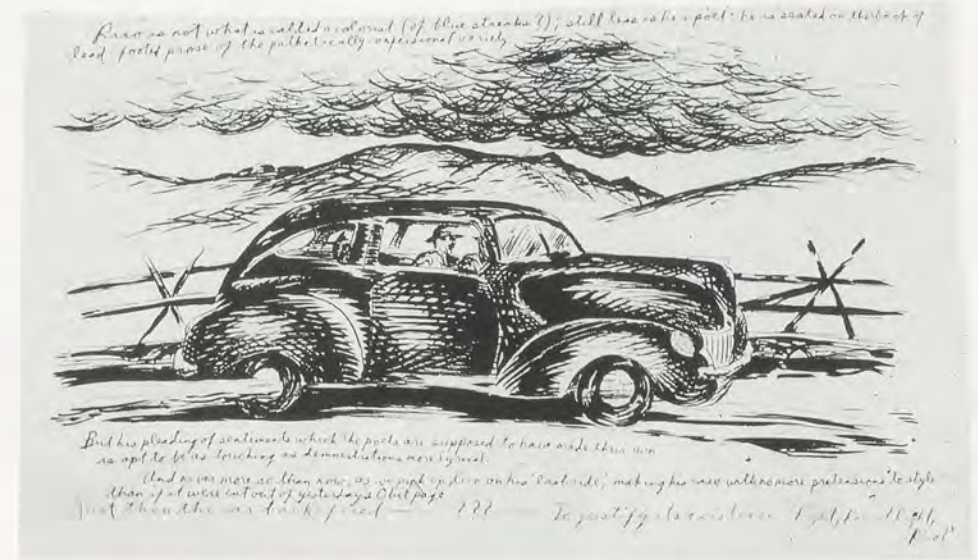 Rico is not what is called a colorist (of blue streaks?); still less is he a poet: he is seated on the back of
lead footed prose of the pathetically unpersonal variety.
But his pleading of sentiments which the poets are supposed to have made their own
is apt to be as touching as demonstrations more lyrical.
And never more so than now, as we pick up Rico on his "last ride," making his case with no more pretensions to style
than if it were cut out of yesterday's Obit page
Just then the car backfired — ???
To justify its existence